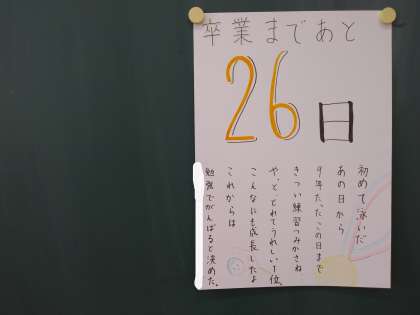 卒業まであと
26日
初めて泳いだ
あの日から
9年たったこの日まで
きつい練習つみかさね
やっととれてうれしい1位。
こんなにも成長したよ
これからは
勉強でがんばると決めた。